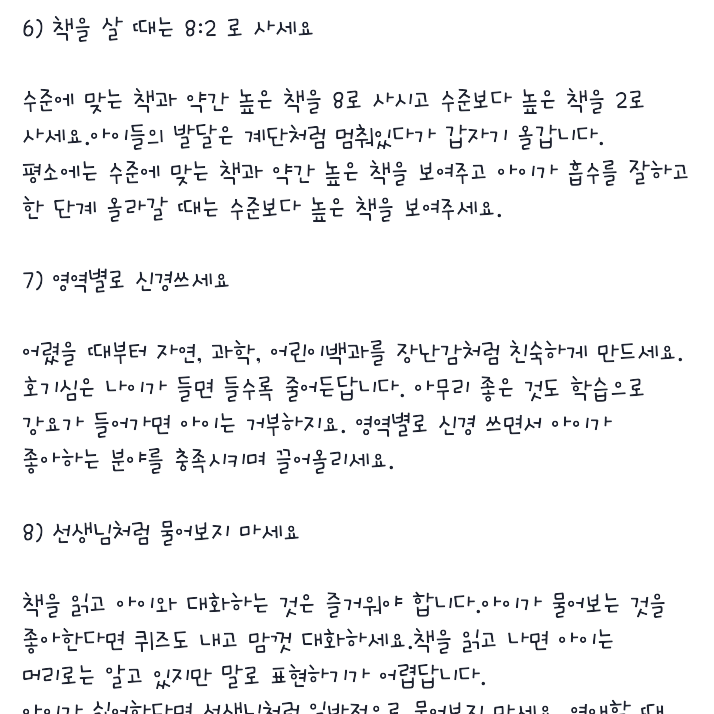 6) 책을 살 때는 8:2 로 사세요
수준에 맞는 책과 약간 높은 책을 8로 사시고 수준보다 높은 책을 2로
사세요.아이들의 발달은 계단처럼 멈춰있다가 갑자기 올갑니다.
평소에는 수준에 맞는 책과 약간 높은 책을 보여주고 아이가 흡수를 잘하고
한 단계 올라갈 때는 수준보다 높은 책을 보여주세요.
7) 영역별로 신경쓰세요
어렸을 때부터 자연, 과학, 어린이백과를 장난감처럼 친숙하게 만드세요.
호기심은 나이가 들면 들수록 줄어든답니다. 아무리 좋은 것도 학습으로
강요가 들어가면 아이는 거부하지요. 영역별로 신경 쓰면서 아이가
좋아하는 분야를 충족시키며 끌어올리세요.
8) 선생님처럼 물어보지 마세요
책을 읽고 아이와 대화하는 것은 즐거워야 합니다.아이가 물어보는 것을
좋아한다면 퀴즈도 내고 맘껏 대화하세요.책을 읽고 나면 아이는
머리로는 알고 있지만 말로 표현하기가 어렵답니다.
아이가 싫어한다면 선생님처럼 일방적으로 물어보지 마세요.